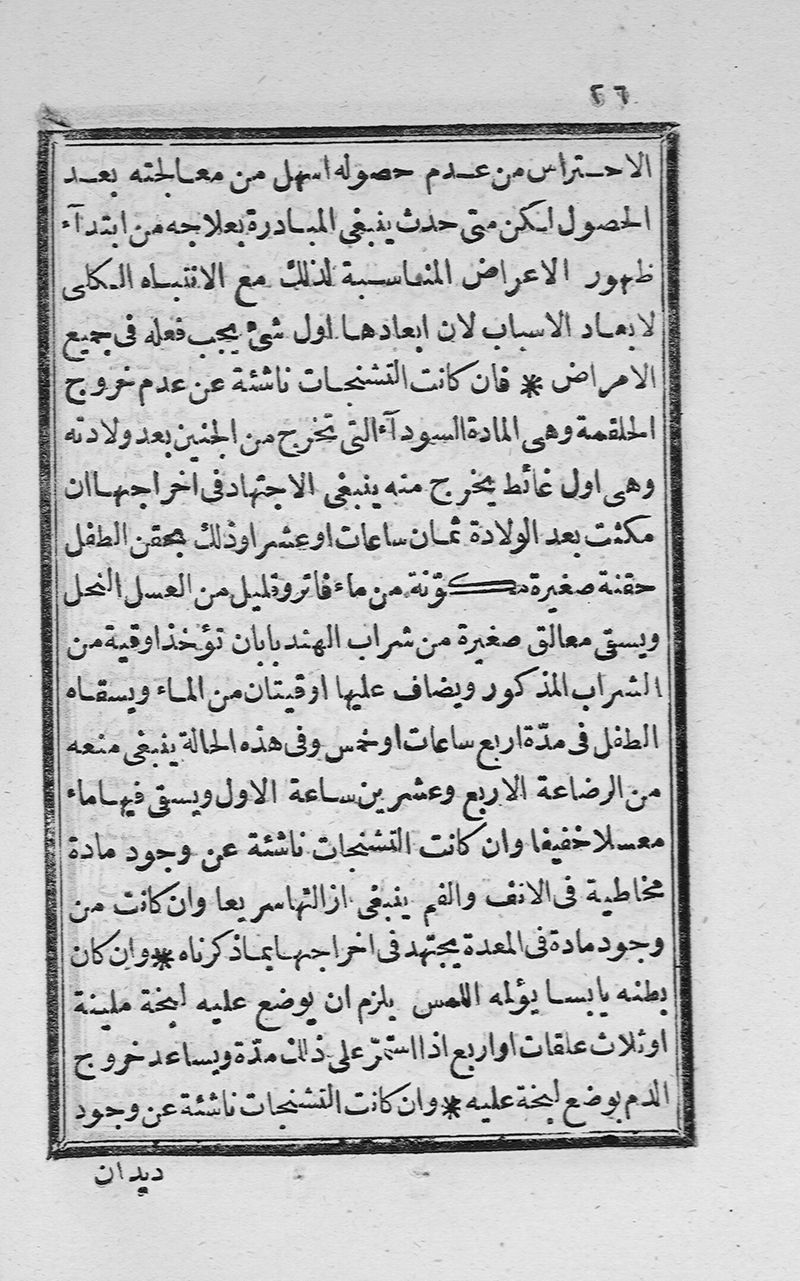 ٢٦
الاحتراس من عدم حصوله اسهل من معالجته بعد
الحصول لكن متى حدث ينبغى المبادرة بعلاجه من ابتدآء
ظهور الاعراض المناسبة لذلك مع الانتباه الكلى
لابعاد الاسباب لان ابعادها اول شئ يجب فعله فى جميع
الامراض * فان كانت التشنجات ناشئة عن عدم خروج
الحلقمة وهى المادة السودآء التى تخرج من الجنين بعد ولادته
وهى اول غائط يخرج منه ينبغى الاجتهاد فى اخراجها ان
مكثت بعد الولادة ثمان ساعات او عشر او ذلك بحقن الطفل
حقنة صغيرة مكوّنة من ماء فاتر وقليل من العسل النحل
ويسقى معالق صغيرة من شراب الهندبا بان تؤخذ اوقية من
الشراب المذكور ويضاف عليها اوقيتان من الماء ويسقاه
الطفل فى مدّة اربع ساعات او خمس وفى هذه الحالة ينبغى منعه
من الرضاعة الاربع وعشرين ساعة الاول ويسقى فيها ماء
معسلا خفيفا وان كانت التشنجات ناشئة عن وجود مادة
مخاطية فى الانف والفم ينبغى ازالتها سريعا وان كانت من
وجود مادة فى المعدة يجتهد فى اخراجها بماذكرناه * وان كان
بطنه يابسا يؤلمه اللمس يلزم ان يوضع عليه لبخة ملينة
او ثلاث علقات او اربع اذا استمرّ على ذلك مدّة ويساعد خروج
الدم بوضع لبخة عليه * وان كانت التشنجات ناشئة عن وجود
ديدان